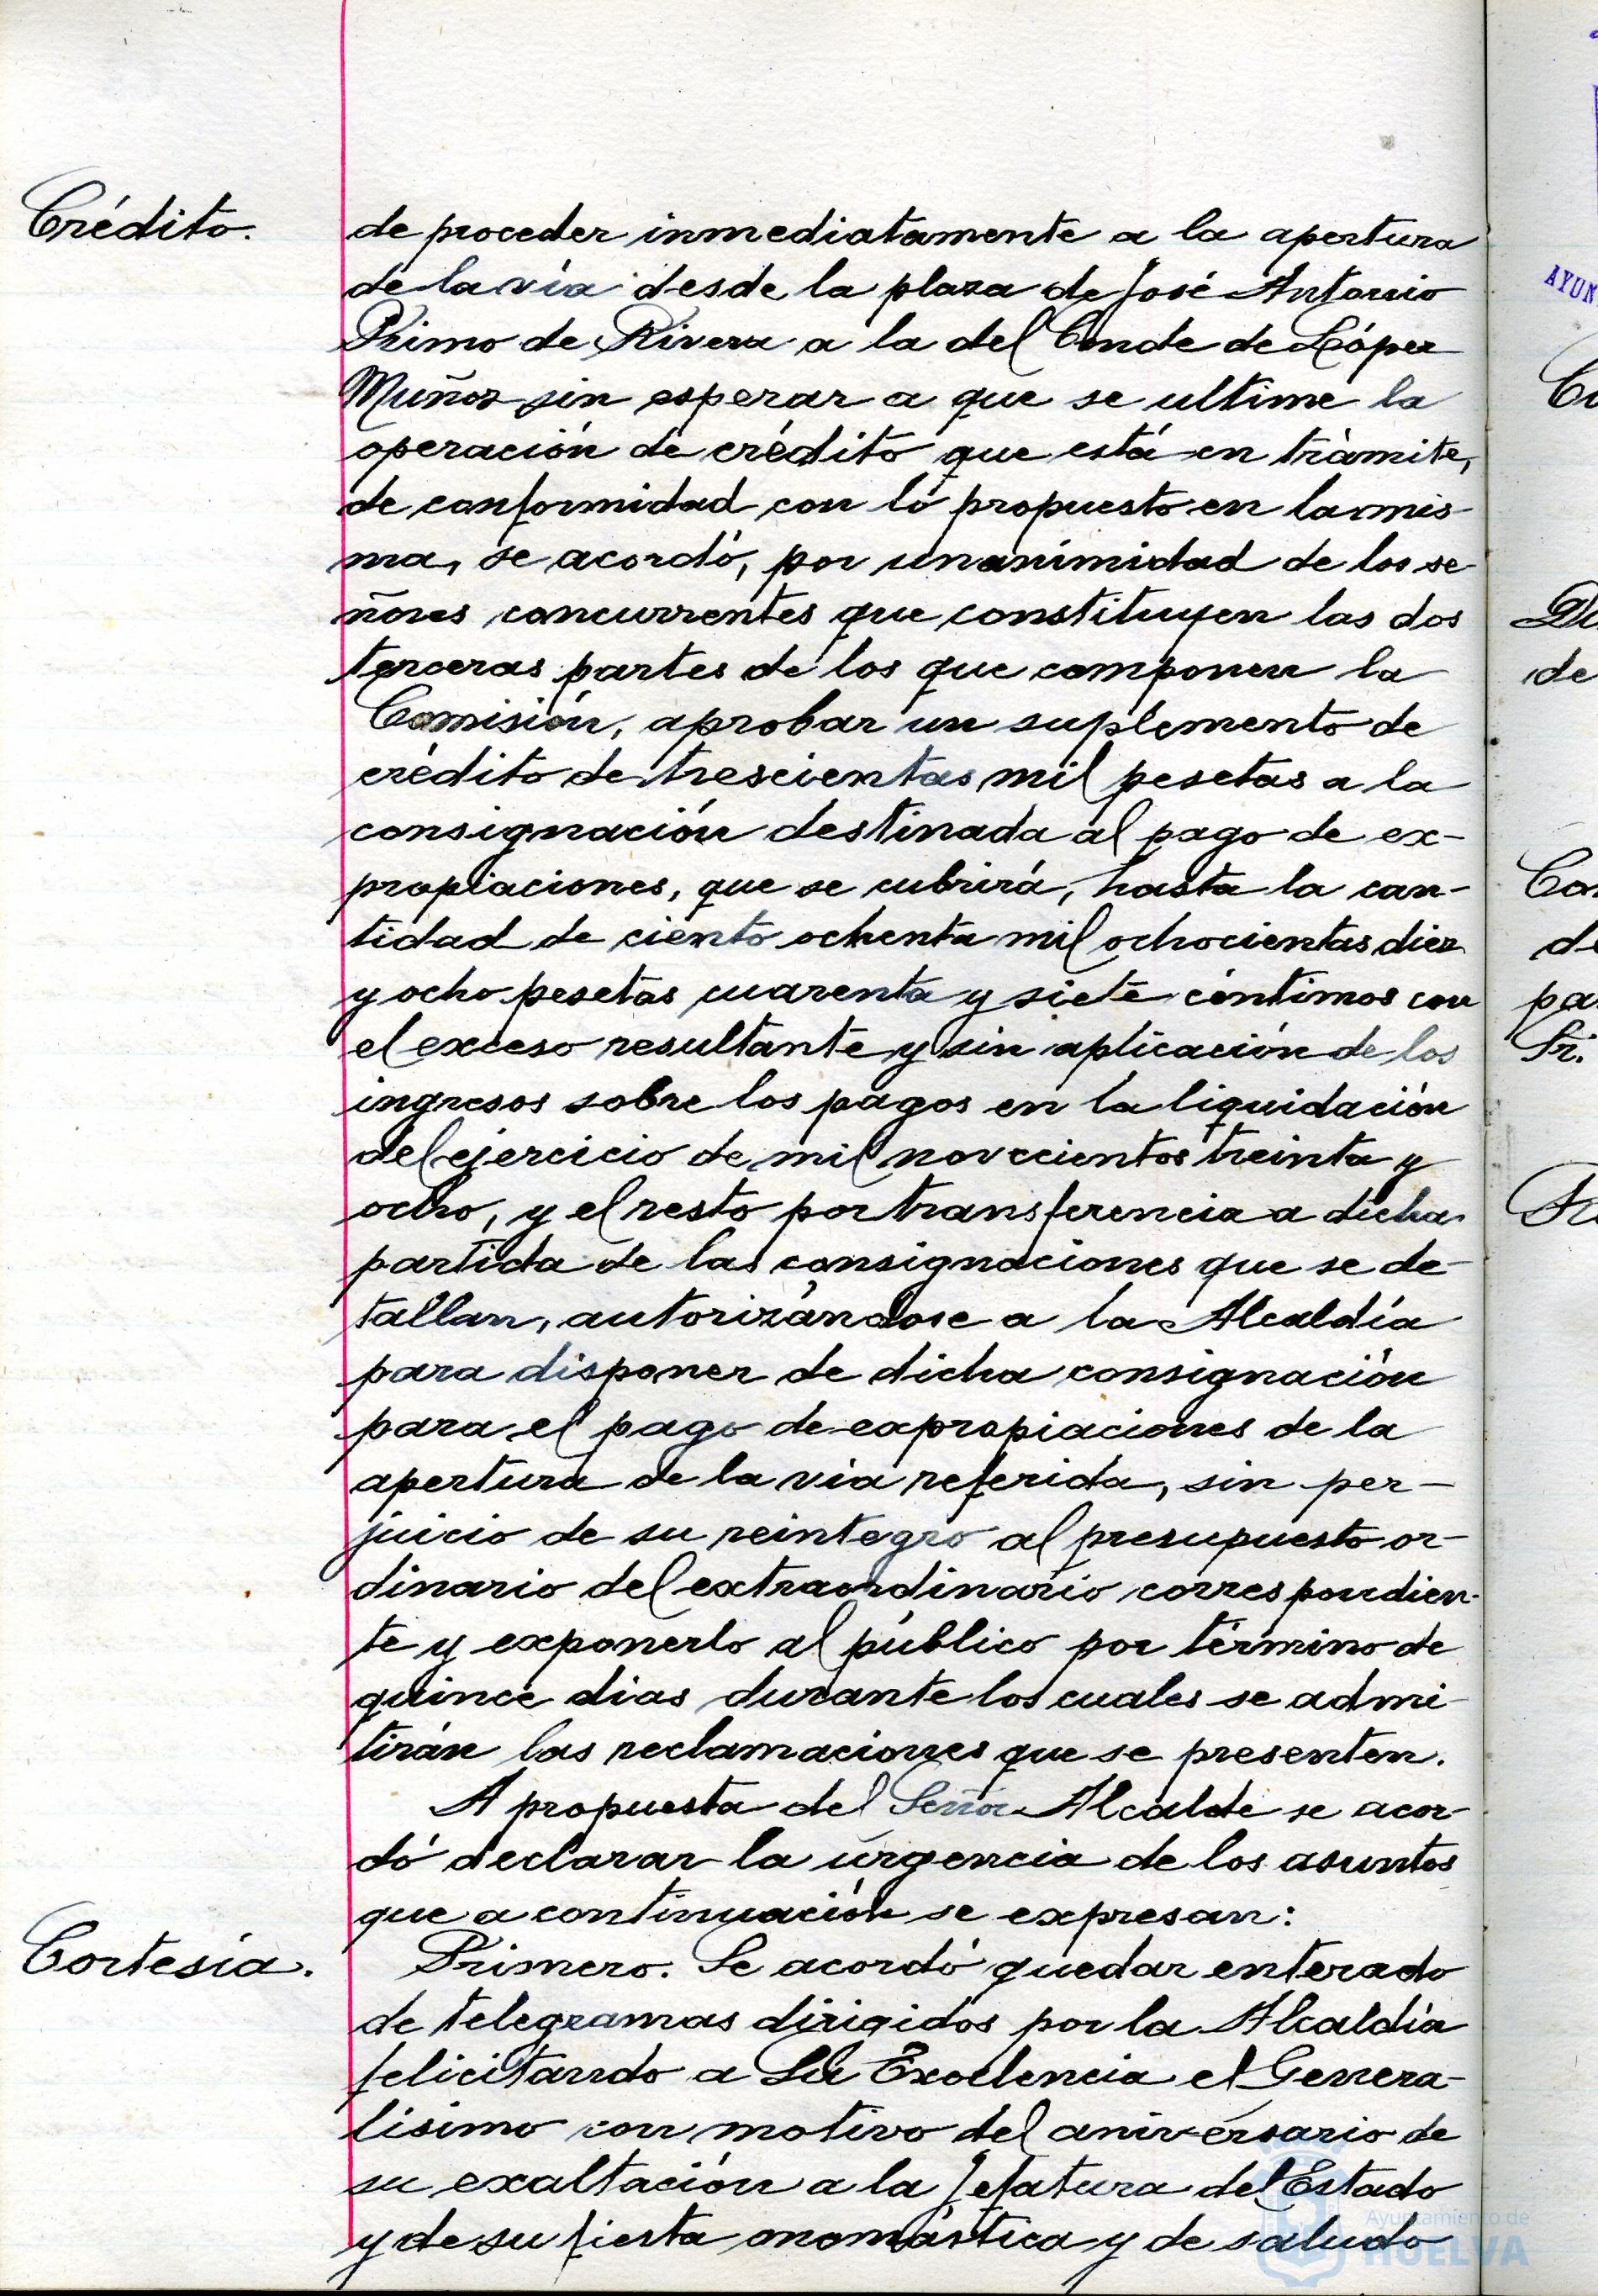 Crédito.
de proceder inmediatamente a la apertura
de la vía desde la plaza de José Antonio
Primo de Rivera a la del Conde de López
Muñoz sin esperar a que se ultime la
operación de crédito que está en trámite,
de conformidad con lo propuesto en la mis-
ma, se acordó, por unanimidad de los se-
ñores concurrentes que constituyen las dos
terceras partes de los que componen la
Comisión, aprobar un suplemento de
crédito de trescientas mil pesetas a la
consignación destinada al pago de ex-
propiaciones, que se cubrirá, hasta la can-
tidad de ciento ochenta mil ochocientas diez
y ocho pesetas cuarenta y siete céntimos con
el exceso resultante y sin aplicación de los
ingresos sobre los pagos en la liquidación
del ejercicio de mil novecientos treinta y
ocho, y el resto por transferencia a dicha
partida de las consignaciones que se de-
tallan, autorizándose a la Alcaldía
para disponer de dicha consignación
para el pago de expropiaciones de la
apertura de la vía referida, sin per-
juicio de su reintegro al presupuesto or-
dinario del extraordinario correspondien-
te y exponerlo al público por término de
quince dias durante los cuales se admi-
tirán las reclamaciones que se presenten.
A propuesta del Señor Alcalde se acor-
dó declarar la urgencia de los asuntos
que a continuación se expresan:
Cortesía.
Primero. Se acordó quedar enterado
de telegramas dirigidos por la Alcaldía
felicitando a Su Excelencia el Genera-
lísimo con motivo del aniversario de
su exaltación a la Jefatura del Estado
y de su fiesta onomástica y de saludo
Ayuntamiento de
HUELVA
AYUN
de
de
pa
Sr.